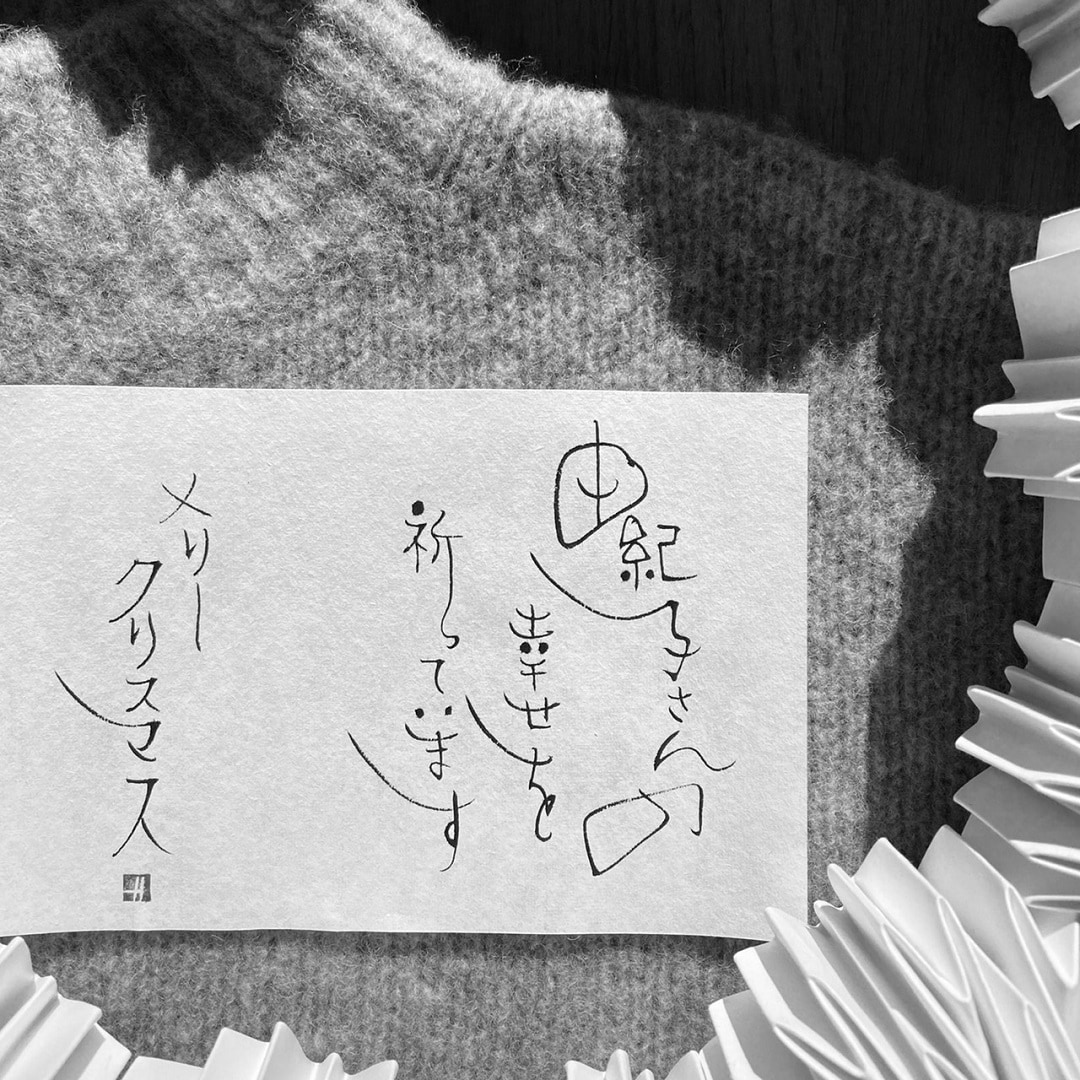 由紀子さんの
幸せを
祈っています
メリー
クリスマス